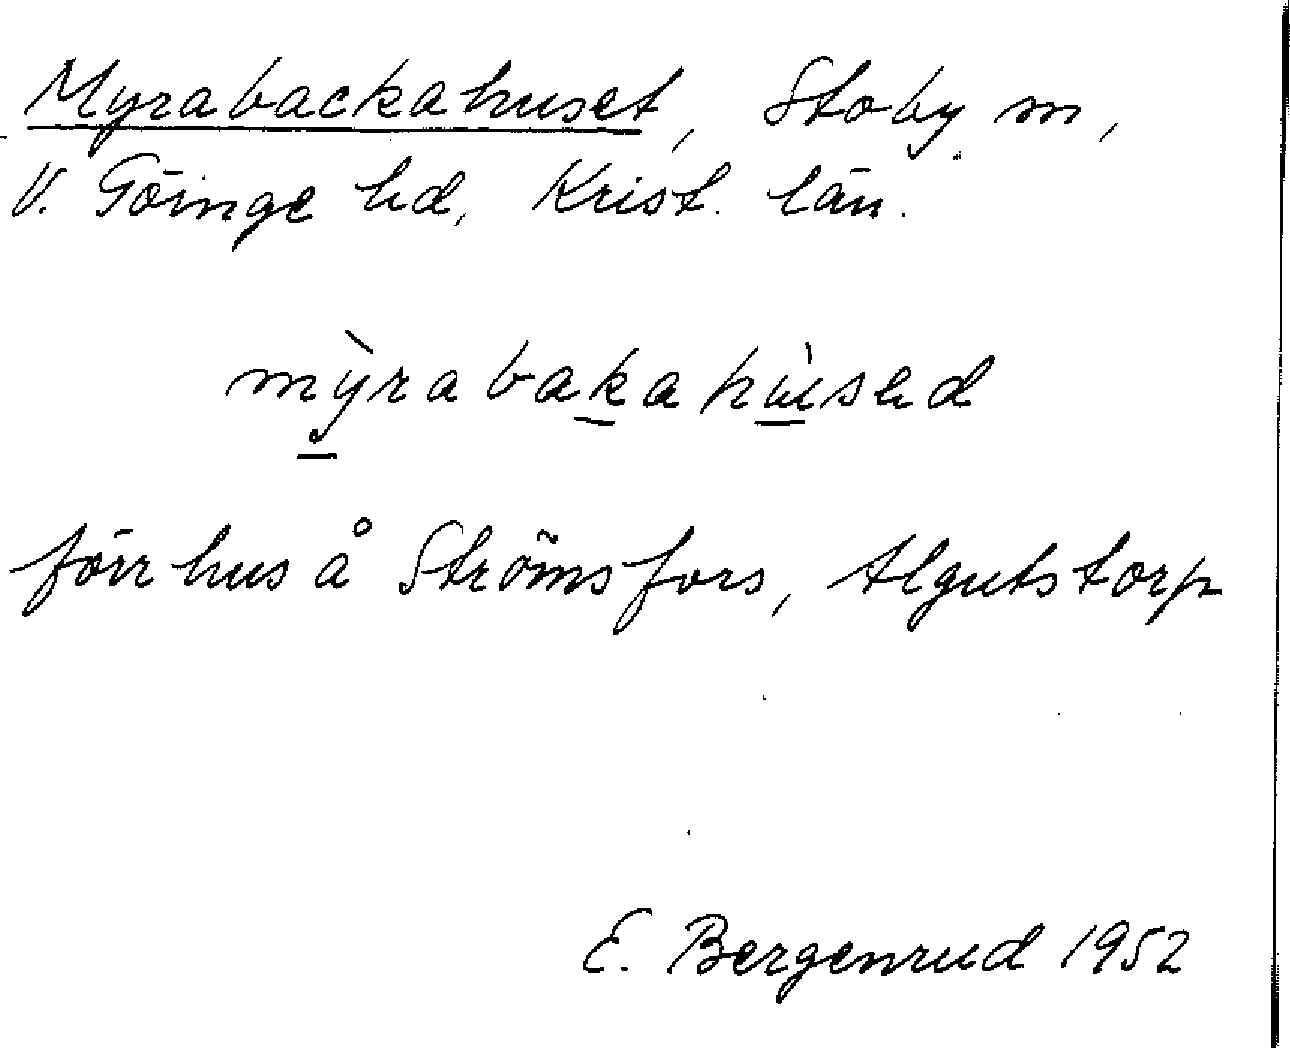 Myrabackahuset, Stoby sn,
V. Göinge hd, Krist. län.
mỳrabakahùsed
förr hus å Strömsfors, Algutstorp
E. Bergenrud 1952